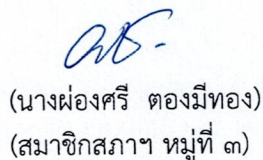 (นางผ่องศรี ตองมีทอง)
(สมาชิกสภาฯ หมู่ที่ ๓)